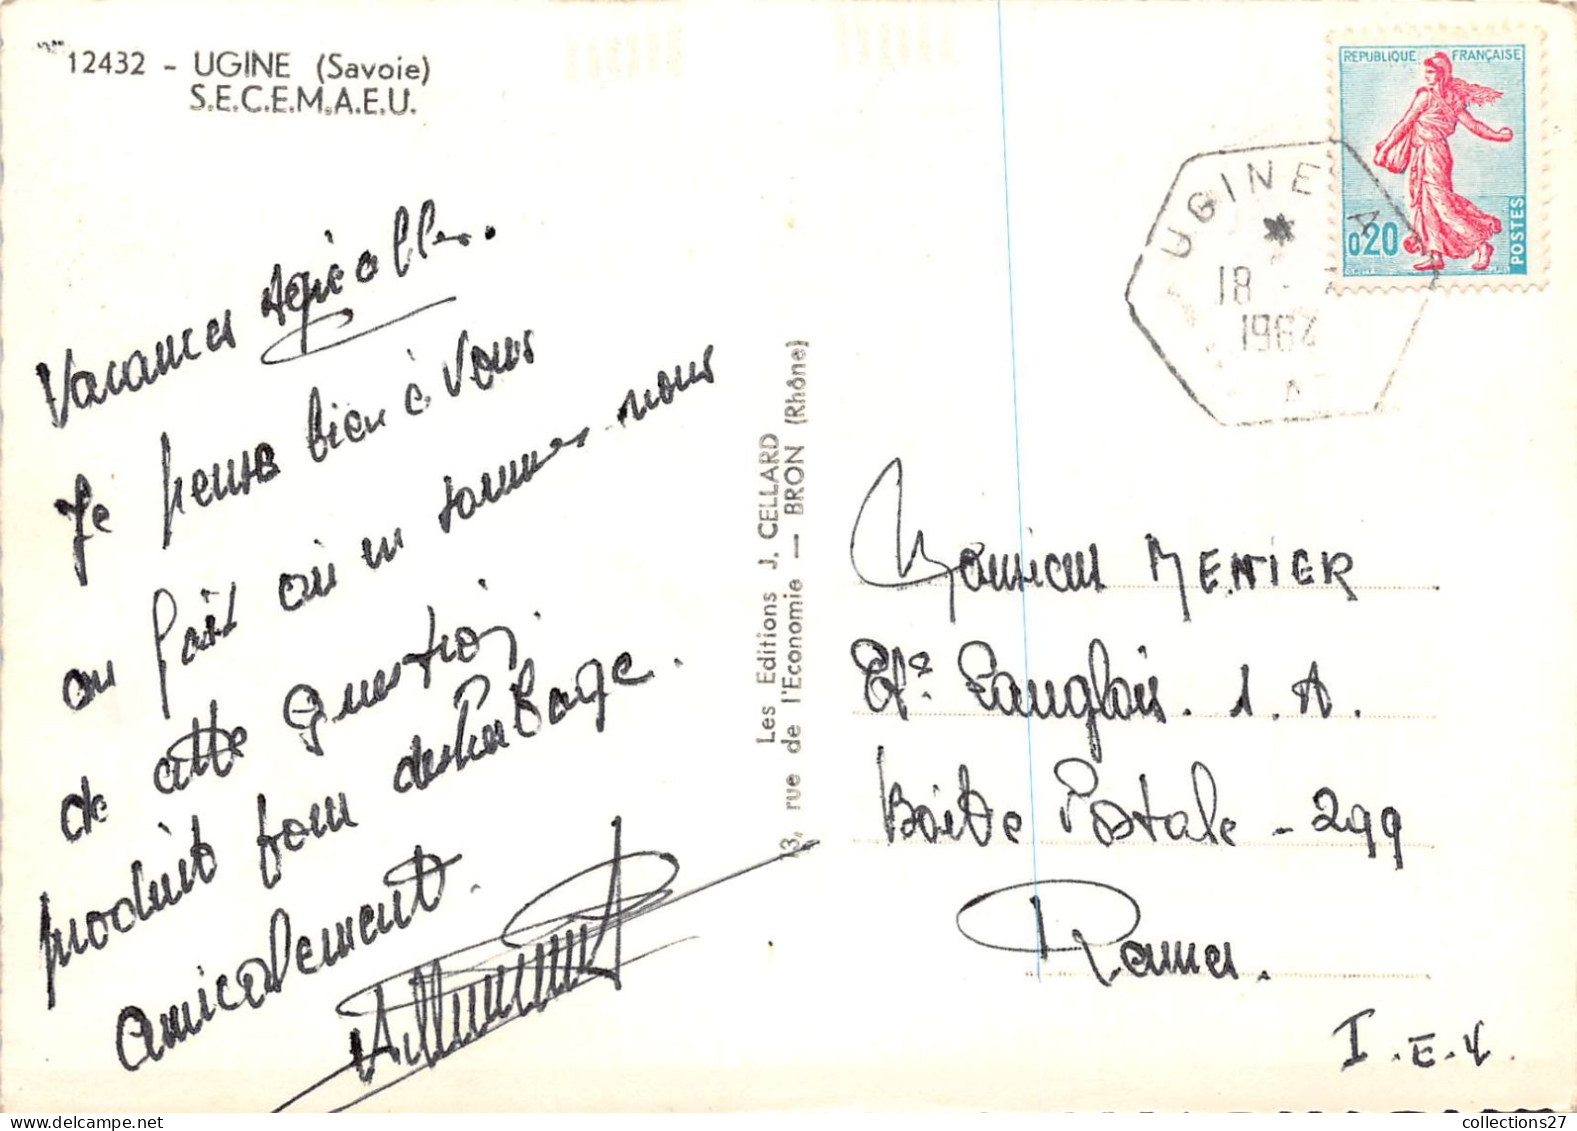 12432 - UGINE (Savoie)
S.E.C.E.M.A.E.U.
Vacances Agicoller.
Je pense bien à vous
au fait où en sommes nous
de cette question.
produit pour
amicalement.
Les Editions J. CELLARD
13, rue de l'Economie — BRON (Rhône)
REPUBLIQUE FRANÇAISE
0,20
POSTES
UGINE A
18
1962
Monsieur MENIER
Ets Langlois. S. A.
Boîte Postale - 299
Rennes.
I. E. V.
collections27